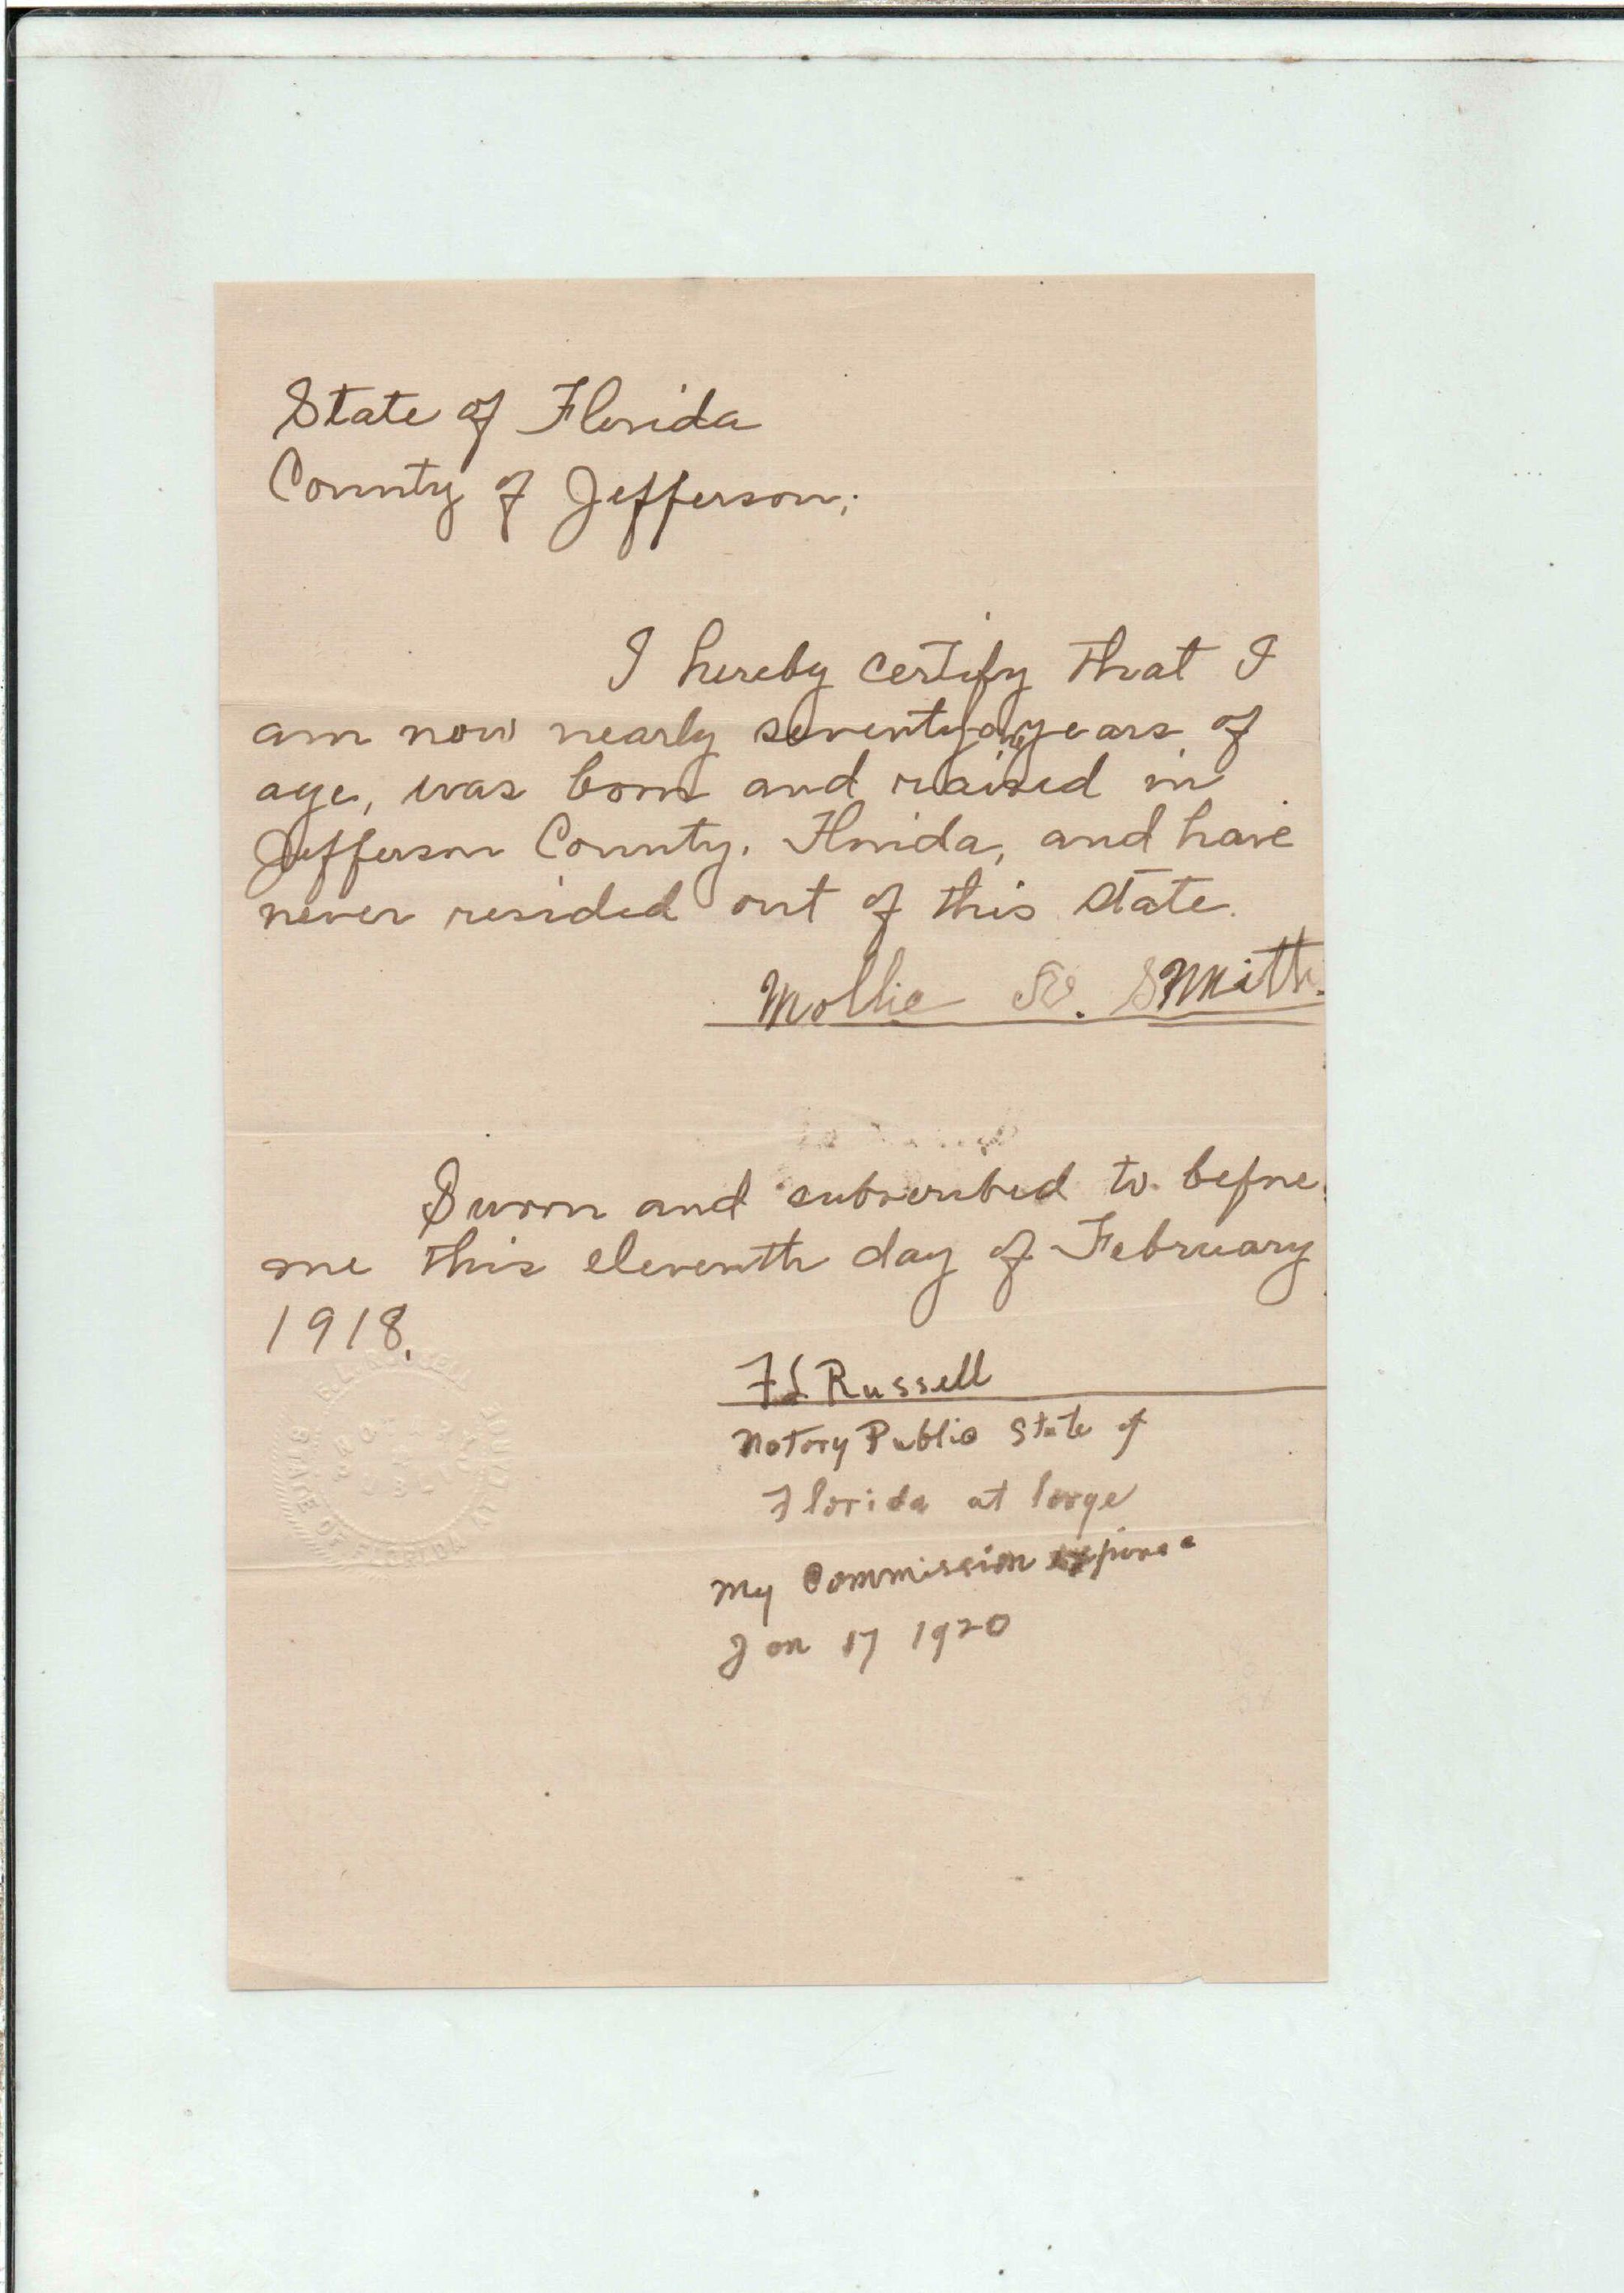 State of Florida
County of Jefferson;
I hereby certify that I
am now nearly seventy one years of
age, was born and raised in
Jefferson County. Florida, and have
never resided out of this state.
Mollie Smith.
Sworn and subscribed to before
me this eleventh day of February
1918.
Russell
Notary Public State of
Florida at large
My Commission expires
Jan 17 1920
NOTARY
PUBLIC
STATE OF FLORIDA AT LARGE